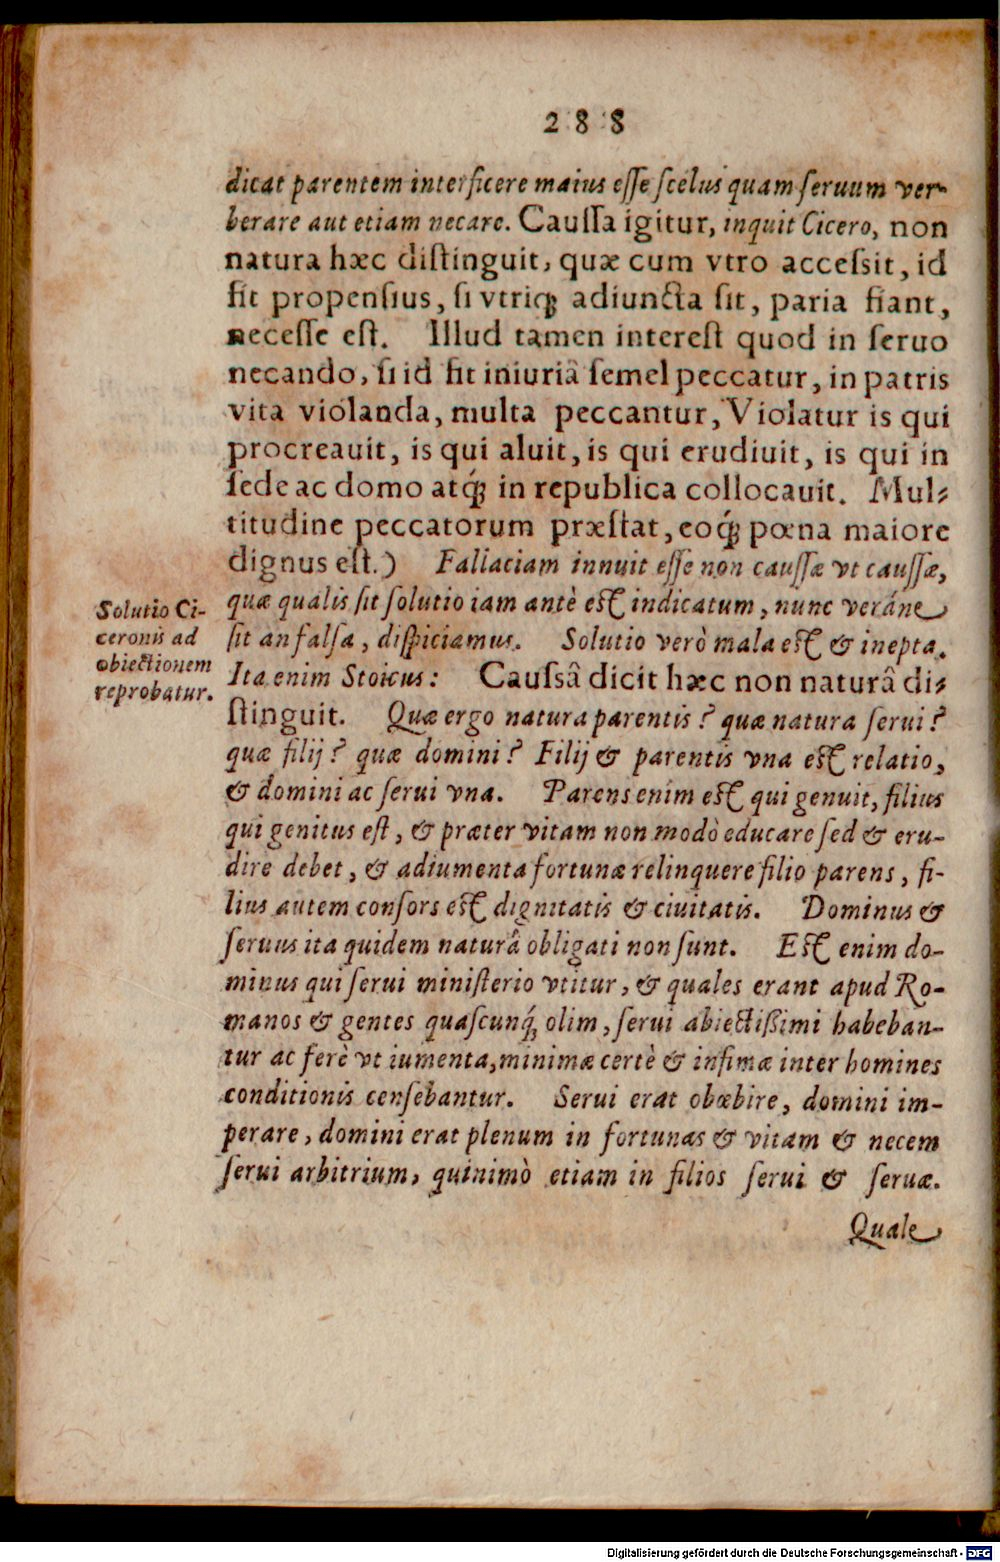 288
dicat parentem interficere maius esse scelus quam seruum ver-
berare aut etiam necare. Caussa igitur, inquit Cicero, non
natura hæc distinguit, quæ cum vtro accessit, id
fit propensius, si vtriq; adiuncta sit, paria fiant,
necesse est. Illud tamen interest quod in seruo
necando, si id fit iniuriâ semel peccatur, in patris
vita violanda, multa peccantur, Violatur is qui
procreauit, is qui aluit, is qui erudiuit, is qui in
sede ac domo atq́; in republica collocauit. Mul-
titudine peccatorum præstat, eoq́; pœna maiore
dignus est.) Fallaciam innuit esse non caussæ vt caussæ,
quæ qualis sit solutio iam antè est indicatum, nunc veráne
sit an falsa, dispiciamus. Solutio verò mala est & inepta.
Ita enim Stoicus: Caussâ dicit hæc non naturâ di-
stinguit. Quæ ergo natura parentis? quæ natura serui?
quæ filij? quæ domini? Filij & parentis vna est relatio,
& domini ac serui vna. Parens enim est qui genuit, filius
qui genitus est, & præter vitam non modò educare sed & eru-
dire debet, & adiumenta fortunæ relinquere filio parens, fi-
lius autem consors est dignitatis & ciuitatis. Dominus &
seruus ita quidem naturâ obligati non sunt. Est enim do-
minus qui serui ministerio vtitur, & quales erant apud Ro-
manos & gentes quascunq́; olim, serui abiectißimi habeban-
tur ac ferè vt iumenta, minimæ certè & infimæ inter homines
conditionis censebantur. Serui erat obœbire, domini im-
perare, domini erat plenum in fortunas & vitam & necem
serui arbitrium, quinimò etiam in filios serui & seruæ.
Quale
Solutio Ci-
ceronis ad
obiectionem
reprobatur.
Digitalisierung gefördert durch die Deutsche Forschungsgemeinschaft - DFG